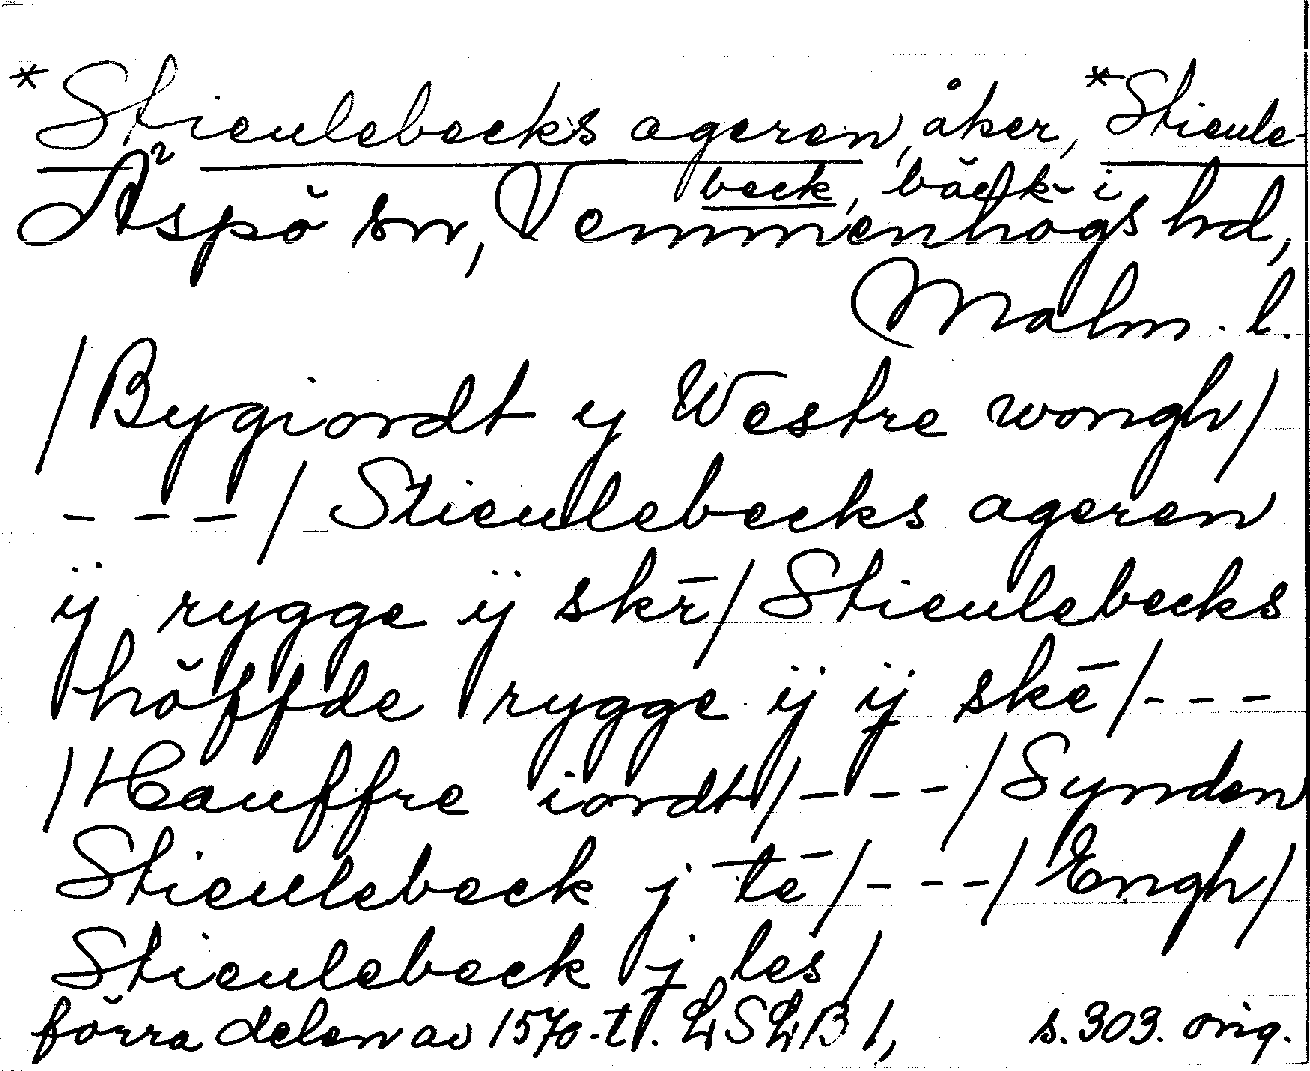 *Stieulebecks ageren, åker, *Stieule-
beck, bäck i
Äspö sn, Vemmenhögs hd,
Malm. l.
/Bygiordt y Westre wongh/
---/ Stieulebecks ageren
ij rygge ij skr̄/ Stieulebecks
höffde rygge ij ij skē/---
/Hauffre iordt/---/Synden
Stieulebeck j tē/---/Engh/
Stieulebeck j les/
förra delen av 1570-t. LSLB 1, s. 303. orig.